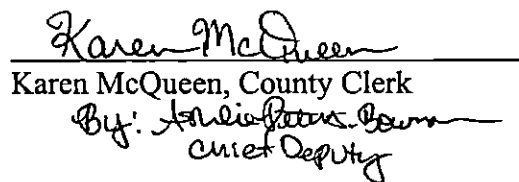 Karen McQueen
Karen McQueen, County Clerk
By:
Chief Deputy